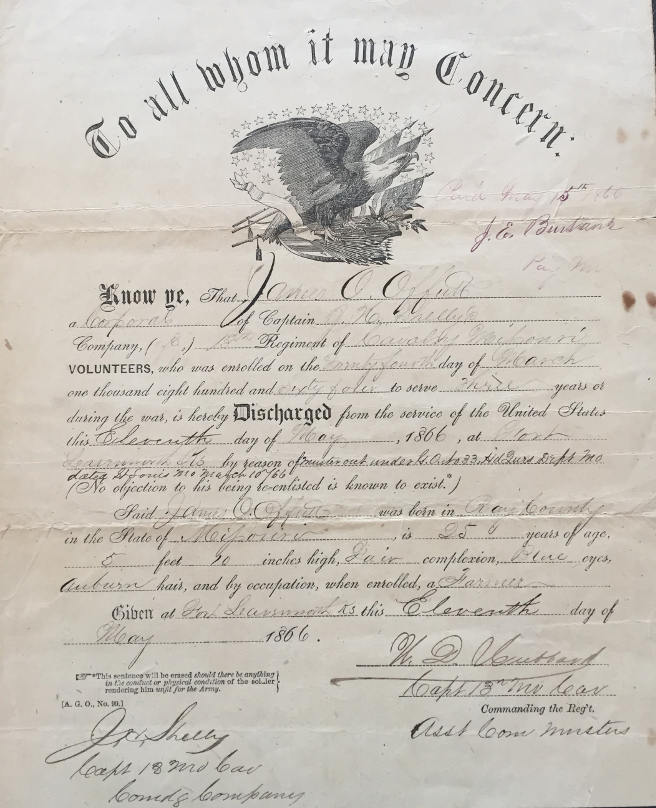 To all whom it may Concern:
Paid May 15th 1866
J. E. Burbank
Pay Mr
Know ye, That James O. Offutt
a Corporal of Captain Shelly's
Company, ( ) 13th Regiment of Cavalry Missouri
VOLUNTEERS, who was enrolled on the Twenty fourth day of March
one thousand eight hundred and sixty four to serve Three years or
during the war, is hereby Discharged from the service of the United States
this Eleventh day of May, 1866, at Fort
Leavenworth Ks by reason of Muster out under G. O. No 33 Hd Qurs Dept Mo.
dated St Louis Mo March 10/66
(No objection to his being re-enlisted is known to exist.*)
Said James O. Offutt was born in Ray County
in the State of Missouri, is 25 years of age,
5 feet 10 inches high, Fair complexion, Blue eyes,
Auburn hair, and by occupation, when enrolled, a Farmer
Given at Fort Leavenworth Ks this Eleventh day of
May 1866.
*This sentence will be erased should there be anything
in the conduct or physical condition of the soldier
rendering him unfit for the Army.
[A. G. O., No. 99.]
W. D. Hubbard
Capt 13th Mo Cav
Commanding the Reg't.
Asst Com Musters
Shelly
Capt 13 Mo Cav
Comdg Company